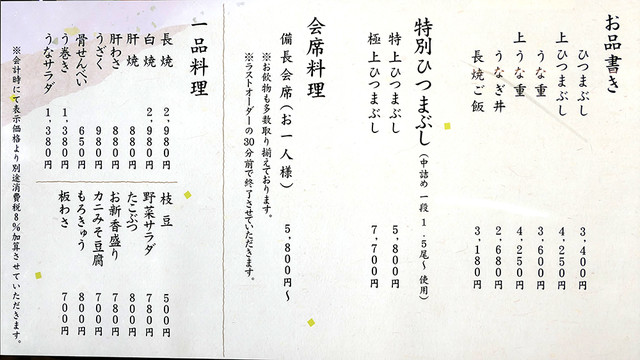 お品書き
ひつまぶし 3,400円
上ひつまぶし 4,250円
うな重 3,600円
上うな重 4,250円
うなぎ丼 2,680円
長焼ご飯 3,180円
特別ひつまぶし(中詰め一段1.5尾〜使用)
特上ひつまぶし 5,800円
極上ひつまぶし 7,700円
会席料理
備長会席(お一人様) 5,800円〜
※お飲物も多数取り揃えております。
※ラストオーダーの30分前で終了させていただきます。
一品料理
長焼 2,980円
白焼 2,980円
肝焼 880円
肝わさ 880円
うざく 980円
骨せんべい 650円
う巻き 1,380円
うなサラダ 1,380円
枝豆 500円
野菜サラダ 780円
たこぶつ 800円
お新香盛り 780円
カニみそ豆腐 700円
もろきゅう 800円
板わさ 700円
※会計時にて表示価格より別途消費税8%加算させていただきます。